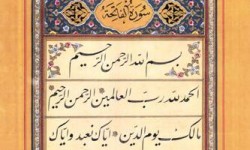 سورة الفاتحة
بسم الله الرحمن الرحيم
الحمد لله رب العالمين الرحمن الرحيم
مالك يوم الدين اياك نعبد واياك